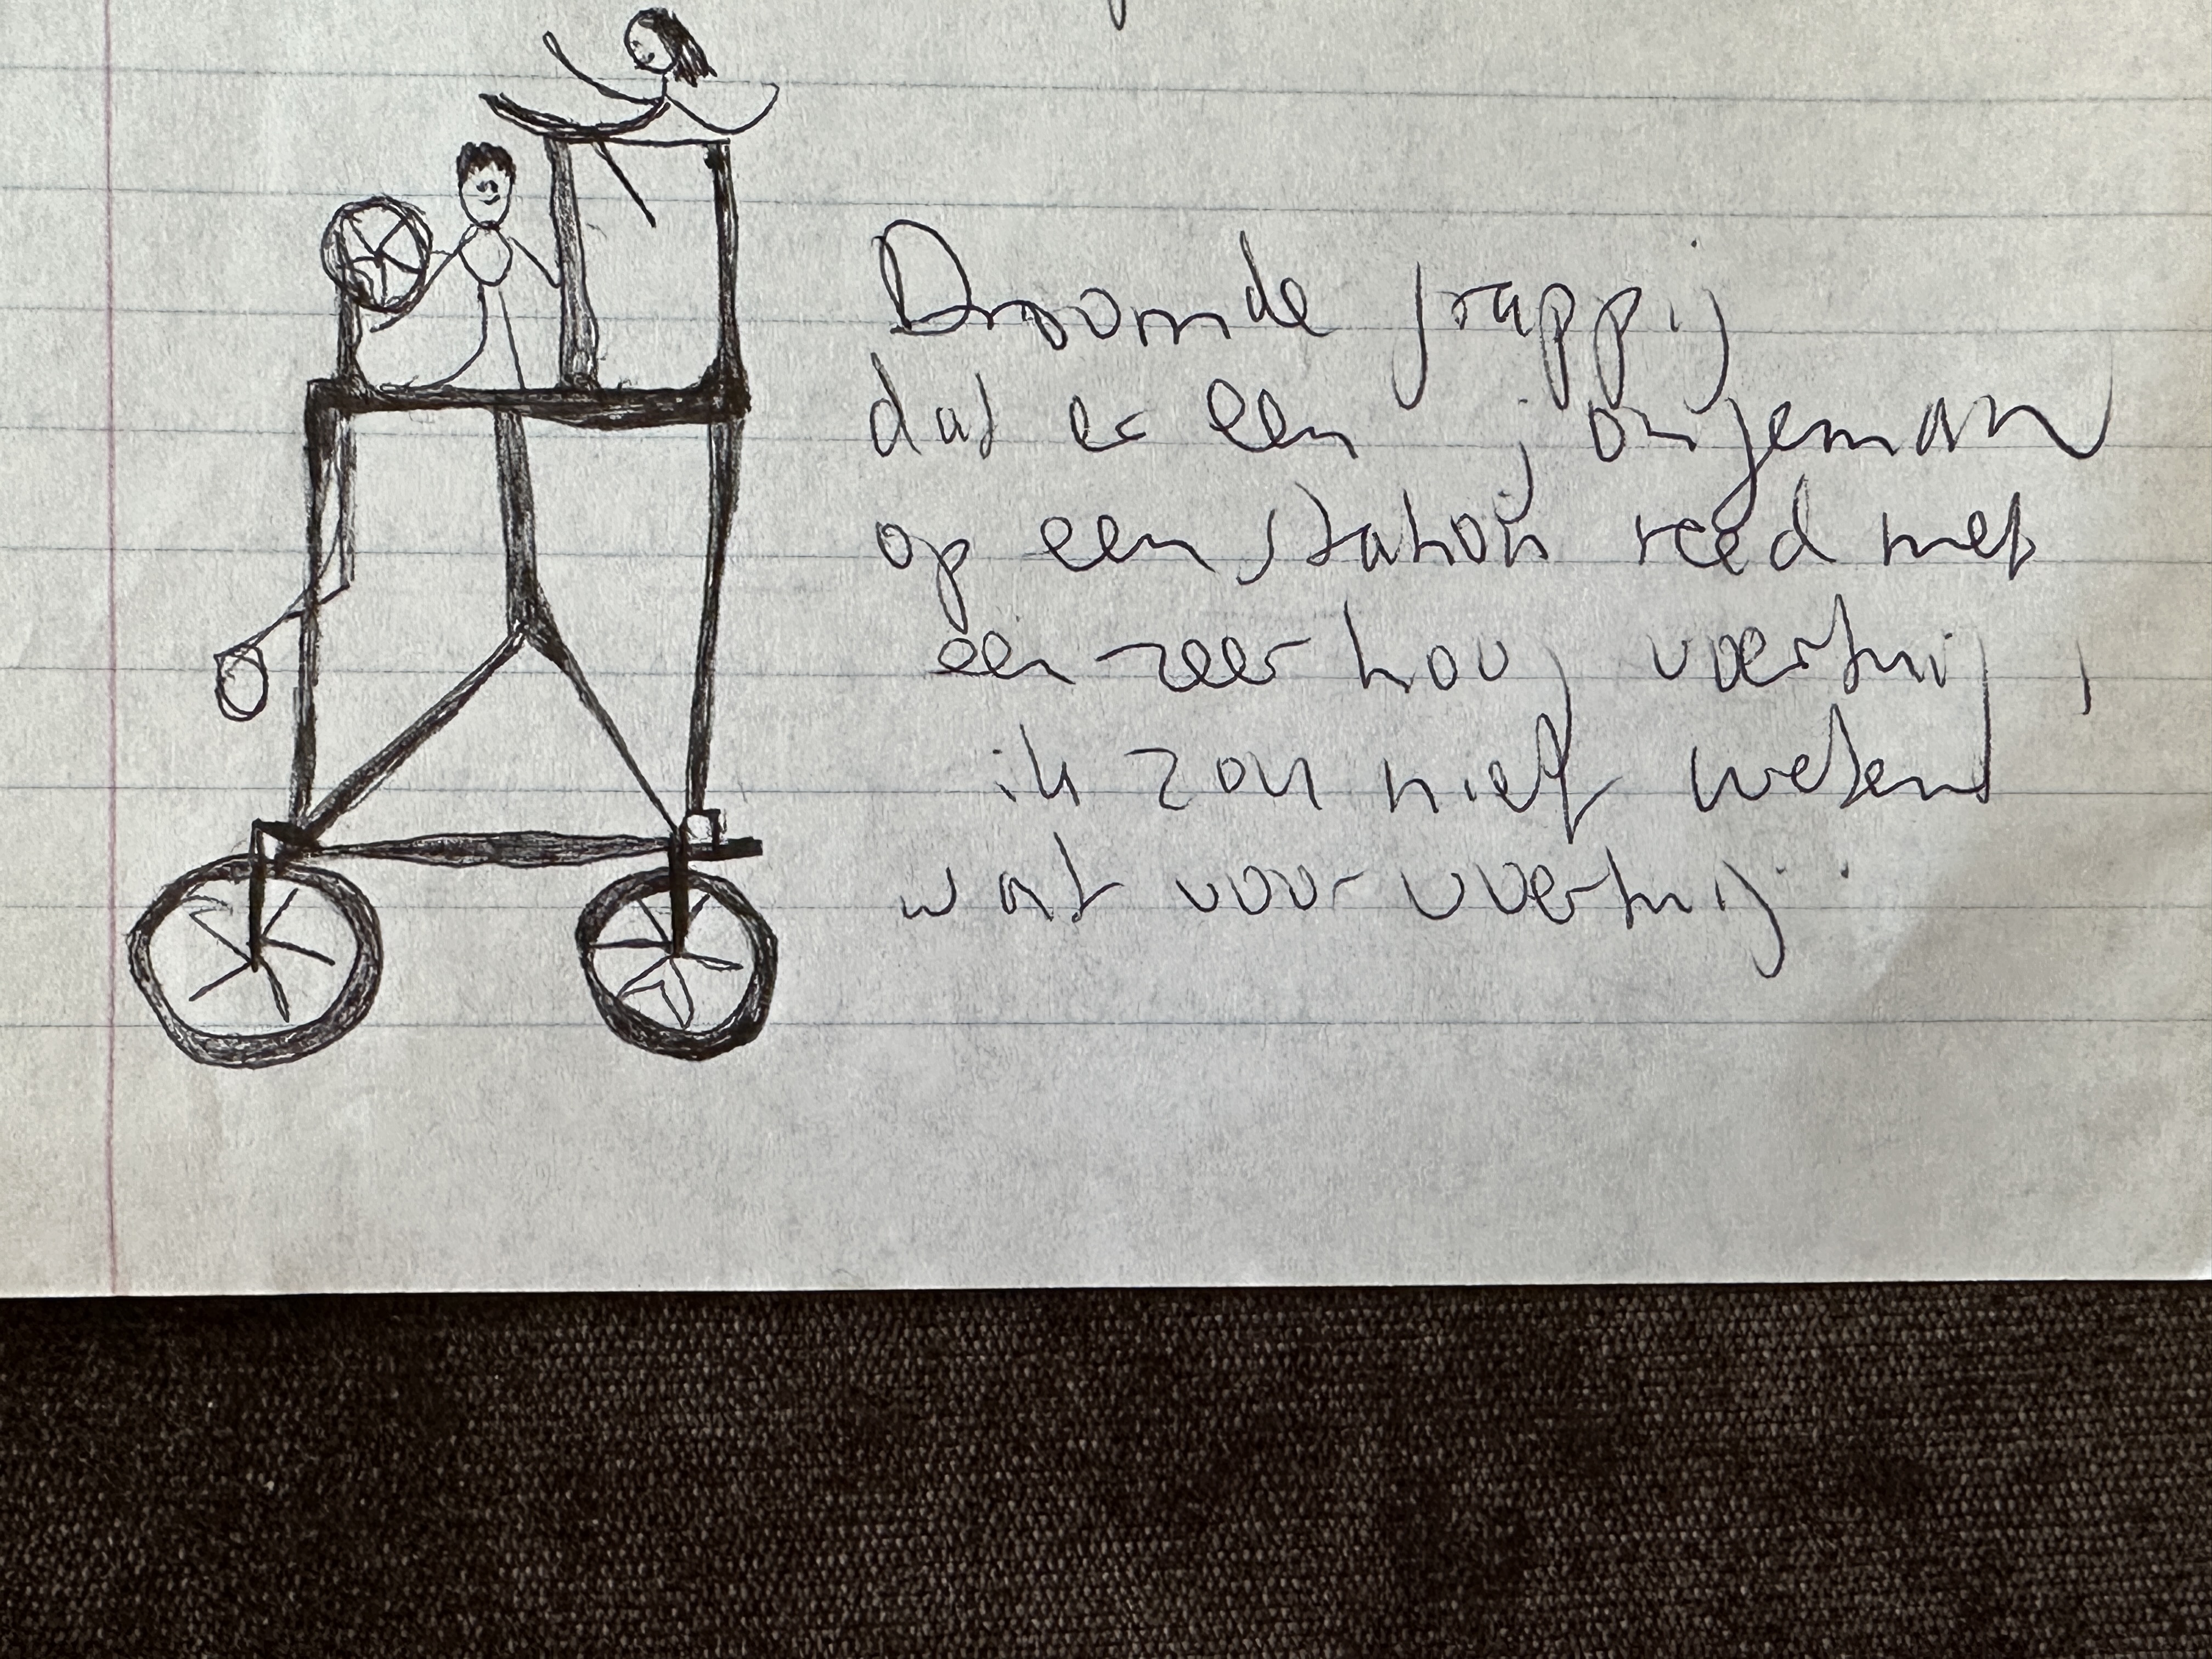 Droomde grappig
dat er een jongeman
op een station reed met
een zeer hoog voertuig,
ik zou niet weten
wat voor voertuig.